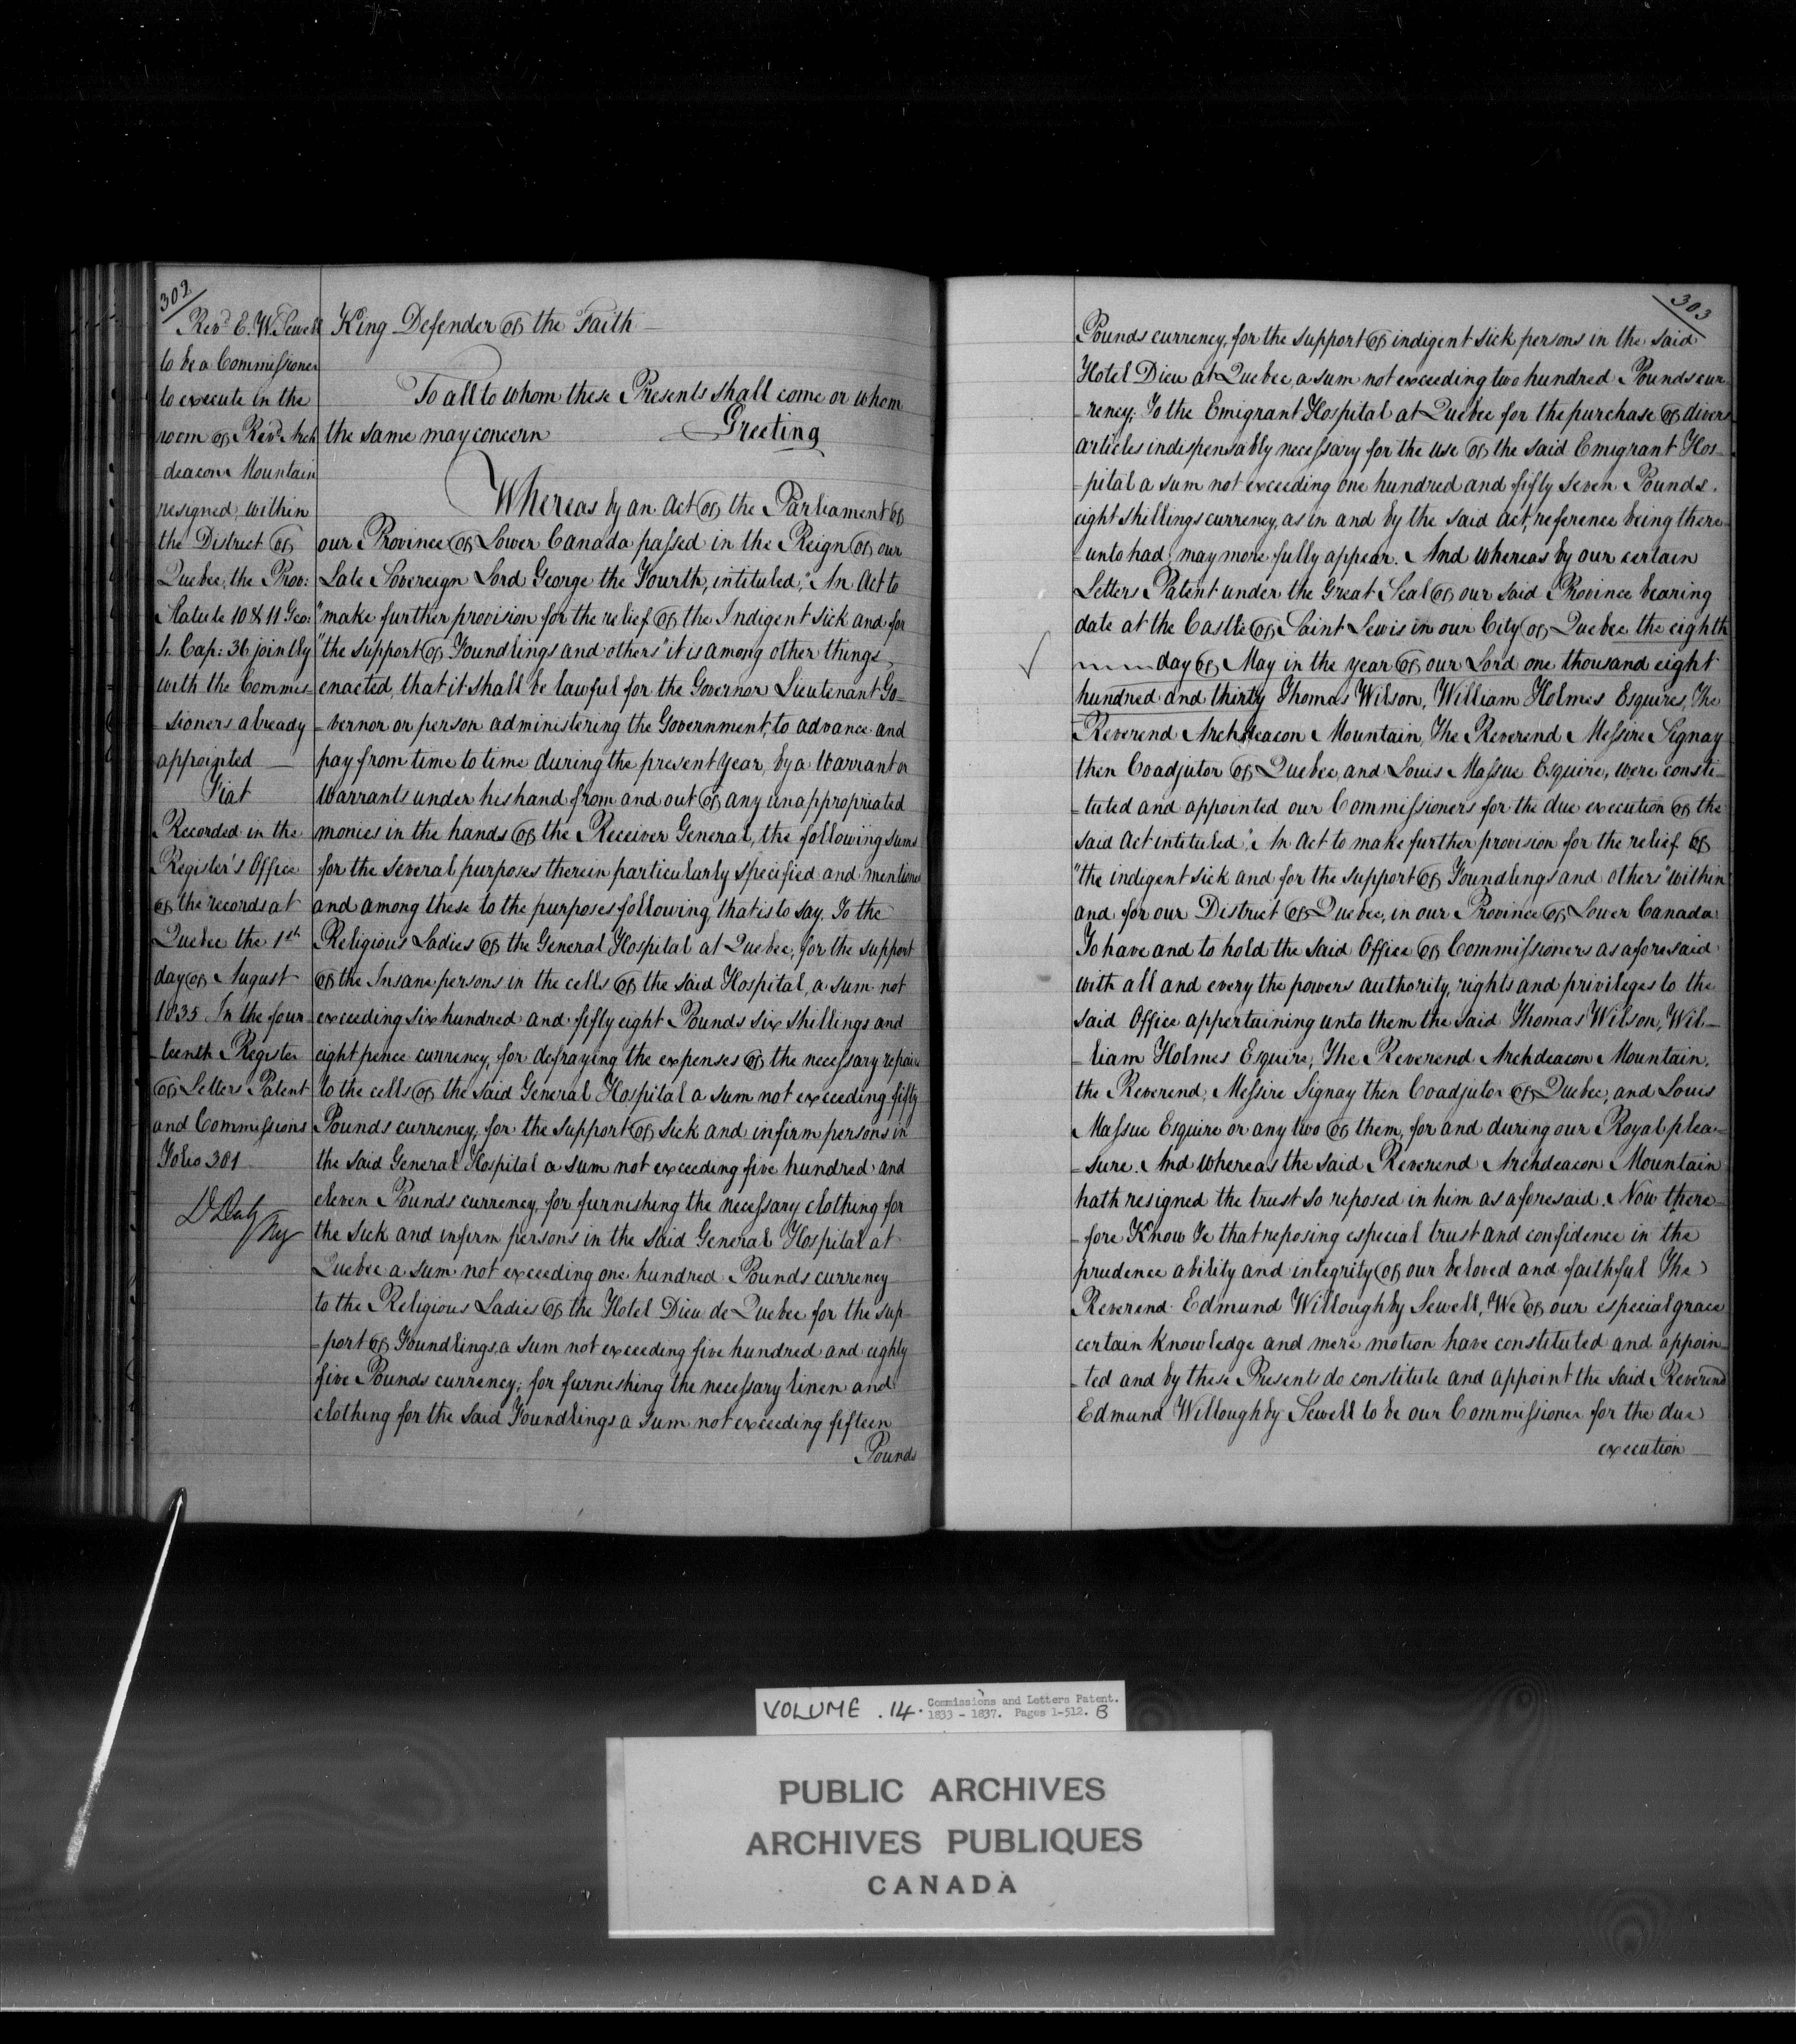 302
Revd. E. W. Sewell
to be a Commissioner
to execute in the
room of Revd. Arch
deacon Mountain
resigned, within
the District of
Quebec, the Prov:
Statute 10 & 11 Geo:
4. Cap: 36 jointly
with the Commis-
-sioners already
appointed
Fiat
Recorded in the
Register's Office
of the records at
Quebec the 1st
day of August
1835 In the four
-teenth Register
of Letters Patent
and Commissions
Folio 301
D Daly
Reg
King Defender of the Faith
To all to whom these Presents shall come or whom
the same may concern Greeting
Whereas by an Act of the Parliament of
our Province of Lower Canada passed in the Reign of our
Late Sovereign Lord George the Fourth, intituled, "An Act to
"make further provision for the relief of the Indigent Sick and for
"the support of Foundlings and others" it is among other things
enacted, that it shall be lawful for the Governor Lieutenant Go-
-vernor or person administering the Government, to advance and
pay from time to time during the present Year, by a Warrant or
Warrants under his hand from and out of any unappropriated
monies in the hands of the Receiver General, the following sums
for the several purposes therein particularly specified and mentioned
and among these to the purposes following that is to say. To the
Religious Ladies of the General Hospital at Quebec, for the support
of the Insane persons in the cells of the said Hospital, a sum not
exceeding six hundred and fifty eight Pounds six shillings and
eight pence currency, for defraying the expenses of the necessary repairs
to the cells of the said General Hospital a sum not exceeding fifty
Pounds currency, for the support of sick and infirm persons in
the said General Hospital a sum not exceeding five hundred and
eleven Pounds currency, for furnishing the necessary clothing for
the sick and infirm persons in the said General Hospital at
Quebec a sum not exceeding one hundred Pounds currency
to the Religious Ladies of the Hotel Dieu de Quebec for the sup-
-port of Foundlings, a sum not exceeding five hundred and eighty
five Pounds currency; for furnishing the necessary linen and
clothing for the said Foundlings a sum not exceeding fifteen
Pounds
303
Pounds currency, for the support of indigent sick persons in the said
Hotel Dieu at Quebec, a sum not exceeding two hundred Pounds cur-
-rency. To the Emigrant Hospital at Quebec for the purchase of divers
articles indispensably necessary for the use of the said Emigrant Hos-
-pital a sum not exceeding one hundred and fifty seven Pounds.
eight shillings currency, as in and by the said Act, reference being there-
-unto had, may more fully appear. And whereas by our certain
Letters Patent under the Great Seal of our said Province bearing
date at the Castle of Saint Lewis in our City of Quebec the eighth
day of May in the year of our Lord one thousand eight
hundred and thirty Thomas Wilson, William Holmes Esquires, The
Reverend Archdeacon Mountain, The Reverend Messire Signay
then Coadjutor of Quebec, and Louis Massue Esquire, were consti-
-tuted and appointed our Commissioners for the due execution of the
said Act intituled, "An Act to make further provision for the relief of
"the indigent sick and for the support of Foundlings and others" within
and for our District of Quebec, in our Province of Lower Canada
To have and to hold the said Office of Commissioners as aforesaid
with all and every the powers authority, rights and privileges to the
said Office appertaining unto them the said Thomas Wilson, Wil-
-liam Holmes Esquire, The Reverend Archdeacon Mountain,
the Reverend, Messire Signay then Coadjutor of Quebec, and Louis
Massue Esquire or any two of them, for and during our Royal plea-
-sure. And whereas the said Reverend Archdeacon Mountain
hath resigned the trust so reposed in him as aforesaid. Now there-
-fore Know Ye that reposing especial trust and confidence in the
prudence ability and integrity of our beloved and faithful The
Reverend Edmund Willoughby Sewell, We of our especial grace
certain knowledge and mere motion have constituted and appoin-
-ted and by these Presents do constitute and appoint the said Reverend
Edmund Willoughby Sewell to be our Commissioner for the due
execution
VOLUME .14. Commissions and Letters Patent.
1833 - 1837. Pages 1-512. B
PUBLIC ARCHIVES
ARCHIVES PUBLIQUES
CANADA